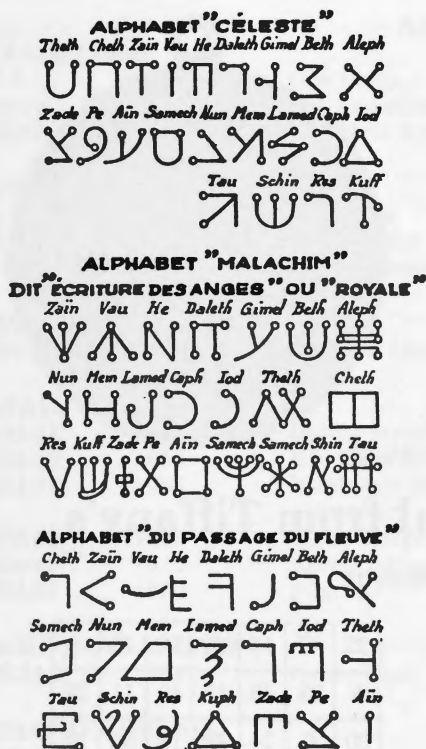 ALPHABET "CÉLESTE"
Theth Cheth Zaïn Vau He Daleth Gimel Beth Aleph
Zade Pe Aïn Samech Nun Mem Lamed Caph Iod
Tau Schin Res Kuff
ALPHABET "MALACHIM"
DIT "ÉCRITURE DES ANGES" OU "ROYALE"
Zaïn Vau He Daleth Gimel Beth Aleph
Nun Mem Lamed Caph Iod Theth Cheth
Res Kuff Zade Pe Aïn Samech Samech Shin Tau
ALPHABET "DU PASSAGE DU FLEUVE"
Cheth Zaïn Vau He Daleth Gimel Beth Aleph
Samech Nun Mem Lamed Caph Iod Theth
Tau Schin Res Kuph Zade Pe Aïn